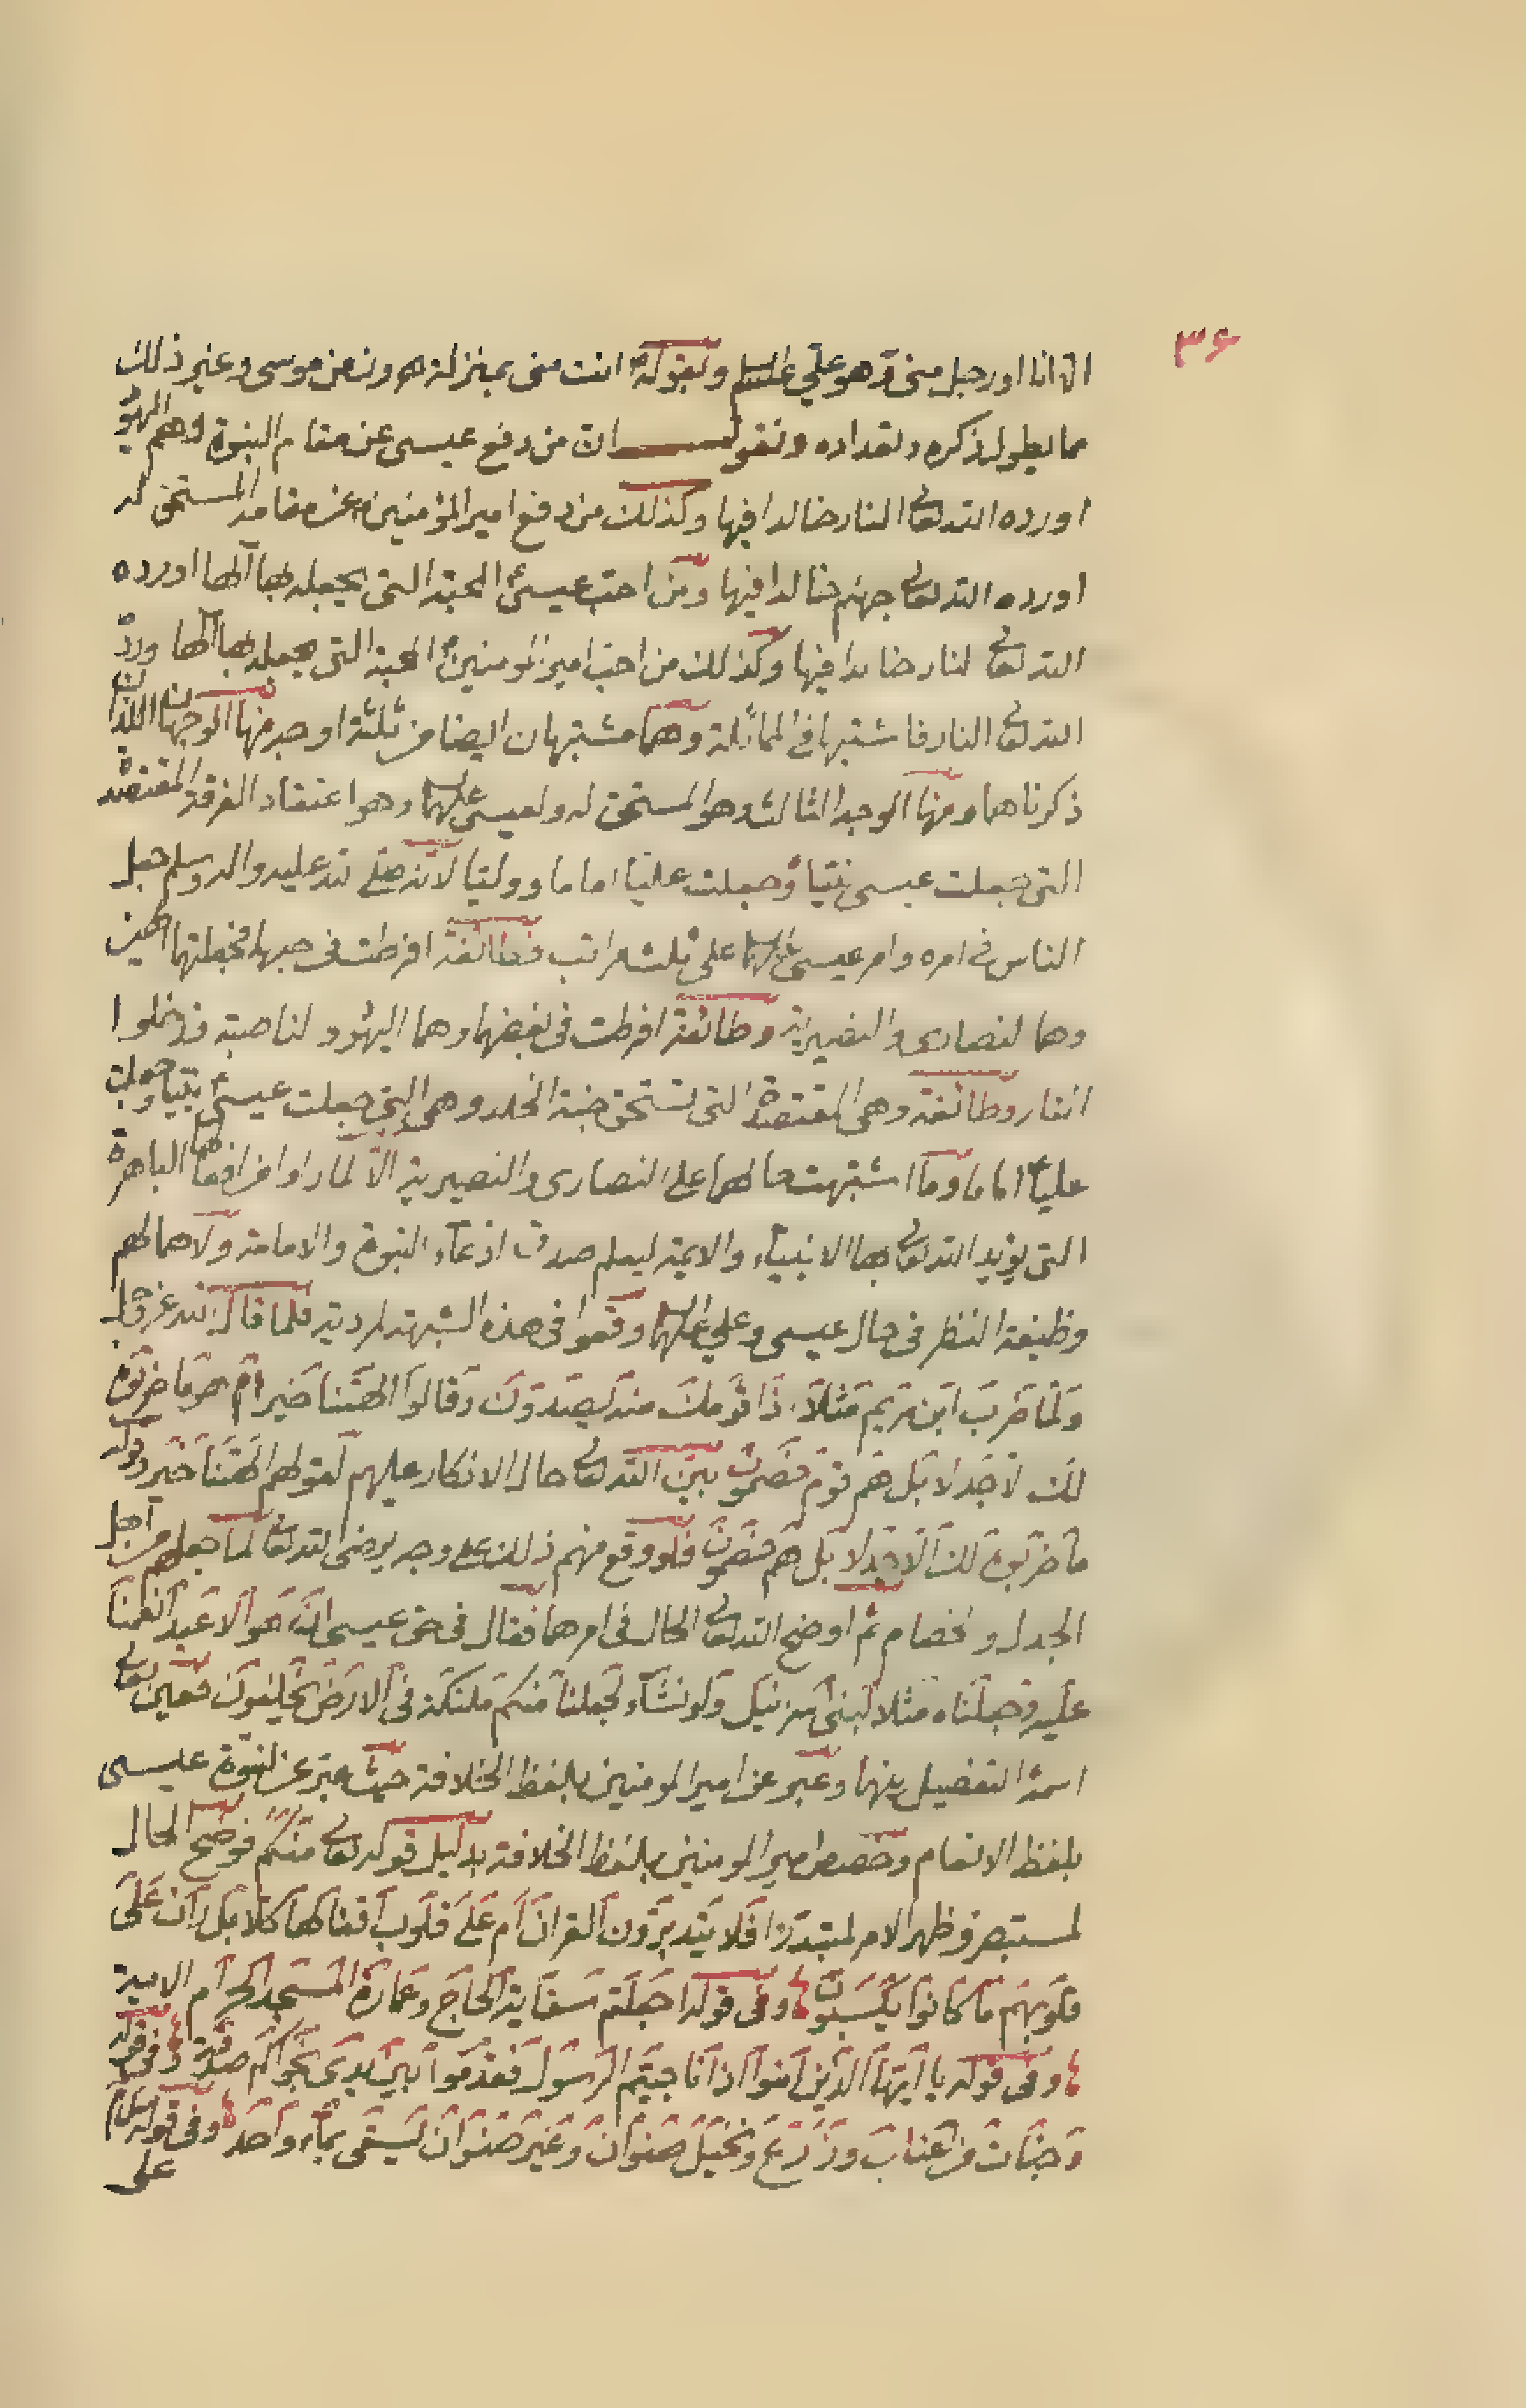 ٣۶
الا انا او رجل منى وهو علي عليه السلم وبقوله انت منى بمنزلة هرون من موسى وغير ذلك
مما يطول ذكره وتعداده ونقول ان من دفع عيسى عن مقام النبوة وهم اليهود
اورده الله تعالى النار خالدا فيها وكذلك من دفع امير المؤمنين عن مقامه المستحق له
اورده الله تعالى جهنم خالدا فيها ومن احب عيسى المحبة التى يجعله بها آلها اورده
الله تعالى النار خالدا فيها وكذلك من احب امير المومنين المحبة التى يجعله بها آلها ورده
الله تعالى النار فاشتبها فى المماثلة وهما مشتبهان ايضا من ثلثة اوجه منها الوجهان اللذان
ذكرناهما ومنها الوجه الثالث وهو المستحق له ولعيسى عليهما السلم وهو اعتقاد الفرقة المقتصدة
التى جعلت عيسى نبيا وجعلت عليا اماما ووليا لانه صلى الله عليه واله وسلم جعل
الناس فى امره وامر عيسى عليهما السلم على ثلث مراتب فطائفة افرطت فى حبهما فجعلتهما الهين
وهما لنصارى والنصيرية وطائفة افرطت فى بغضهما وهما اليهود والناصبة فدخلوا
النار وطائفة وهى المقتصدة التى تستحق جنة الخلد وهى التى جعلت عيسى نبيا وجعلت
عليا اماما وما اشتبهت حالهما على النصارى والنصيرية الا لما راوا من افعالهما الباهرة
التى يؤيد الله تعالى بها الانبياء والايمة ليعلم صدق ادعاء النبوة والامامة ولاهمالهم
وظيفة النظر فى حال عيسى وعلي عليهما السلم وقعوا فى هذه الشبهة المردية فلما قال الله عز وجل
ولما ضرب ابن مريم مثلا اذا قومك منه يصدون وقالوا الهتنا خير ام هو ما ضربوه
لك الا جدلا بل هم قوم خصمون بين الله تعالى حال الانكار عليهم لقولهم الهتنا خير وقوله
ما ضربوه لك الا جدلا بل هم خصمون فلو وقع منهم ذلك على وجه يرضى الله تعالى لما جعلهم من اهل
الجدل والخصام ثم اوضح الله تعالى الحال فى امرهما فقال فى حق عيسى ان هو الا عبد انعمنا
عليه وجعلناه مثلا لبنى اسرئيل ولو نشاء لجعلنا منكم ملئكة فى الارض يخلفون فعين تعالى
اسمه التفضيل بينهما وعبر عن امير المومنين بلفظ الخلافة حيث عبر عن نبوة عيسى
بلفظ الانعام وخصص امير المومنين بلفظ الخلافة بدليل قوله تعالى منكم فوضح الحال
لمستبصر وظهر الامر لمتبدر افلا يتدبرون القران ام على قلوب اقفالها كلا بل ران على
قلوبهم ما كانوا يكسبون وفى قوله اجعلتم سقاية الحاج وعمارة المسجد الحرام الاية
وفى قوله يا ايها الذين امنوا اذا ناجيتم الرسول فقدموا بين يدى نجواكم صدقة وفى قوله
وجنات من اعناب وزرع ونخيل صنوان وغير صنوان يسقى بماء واحد وفى قوله سلام
على